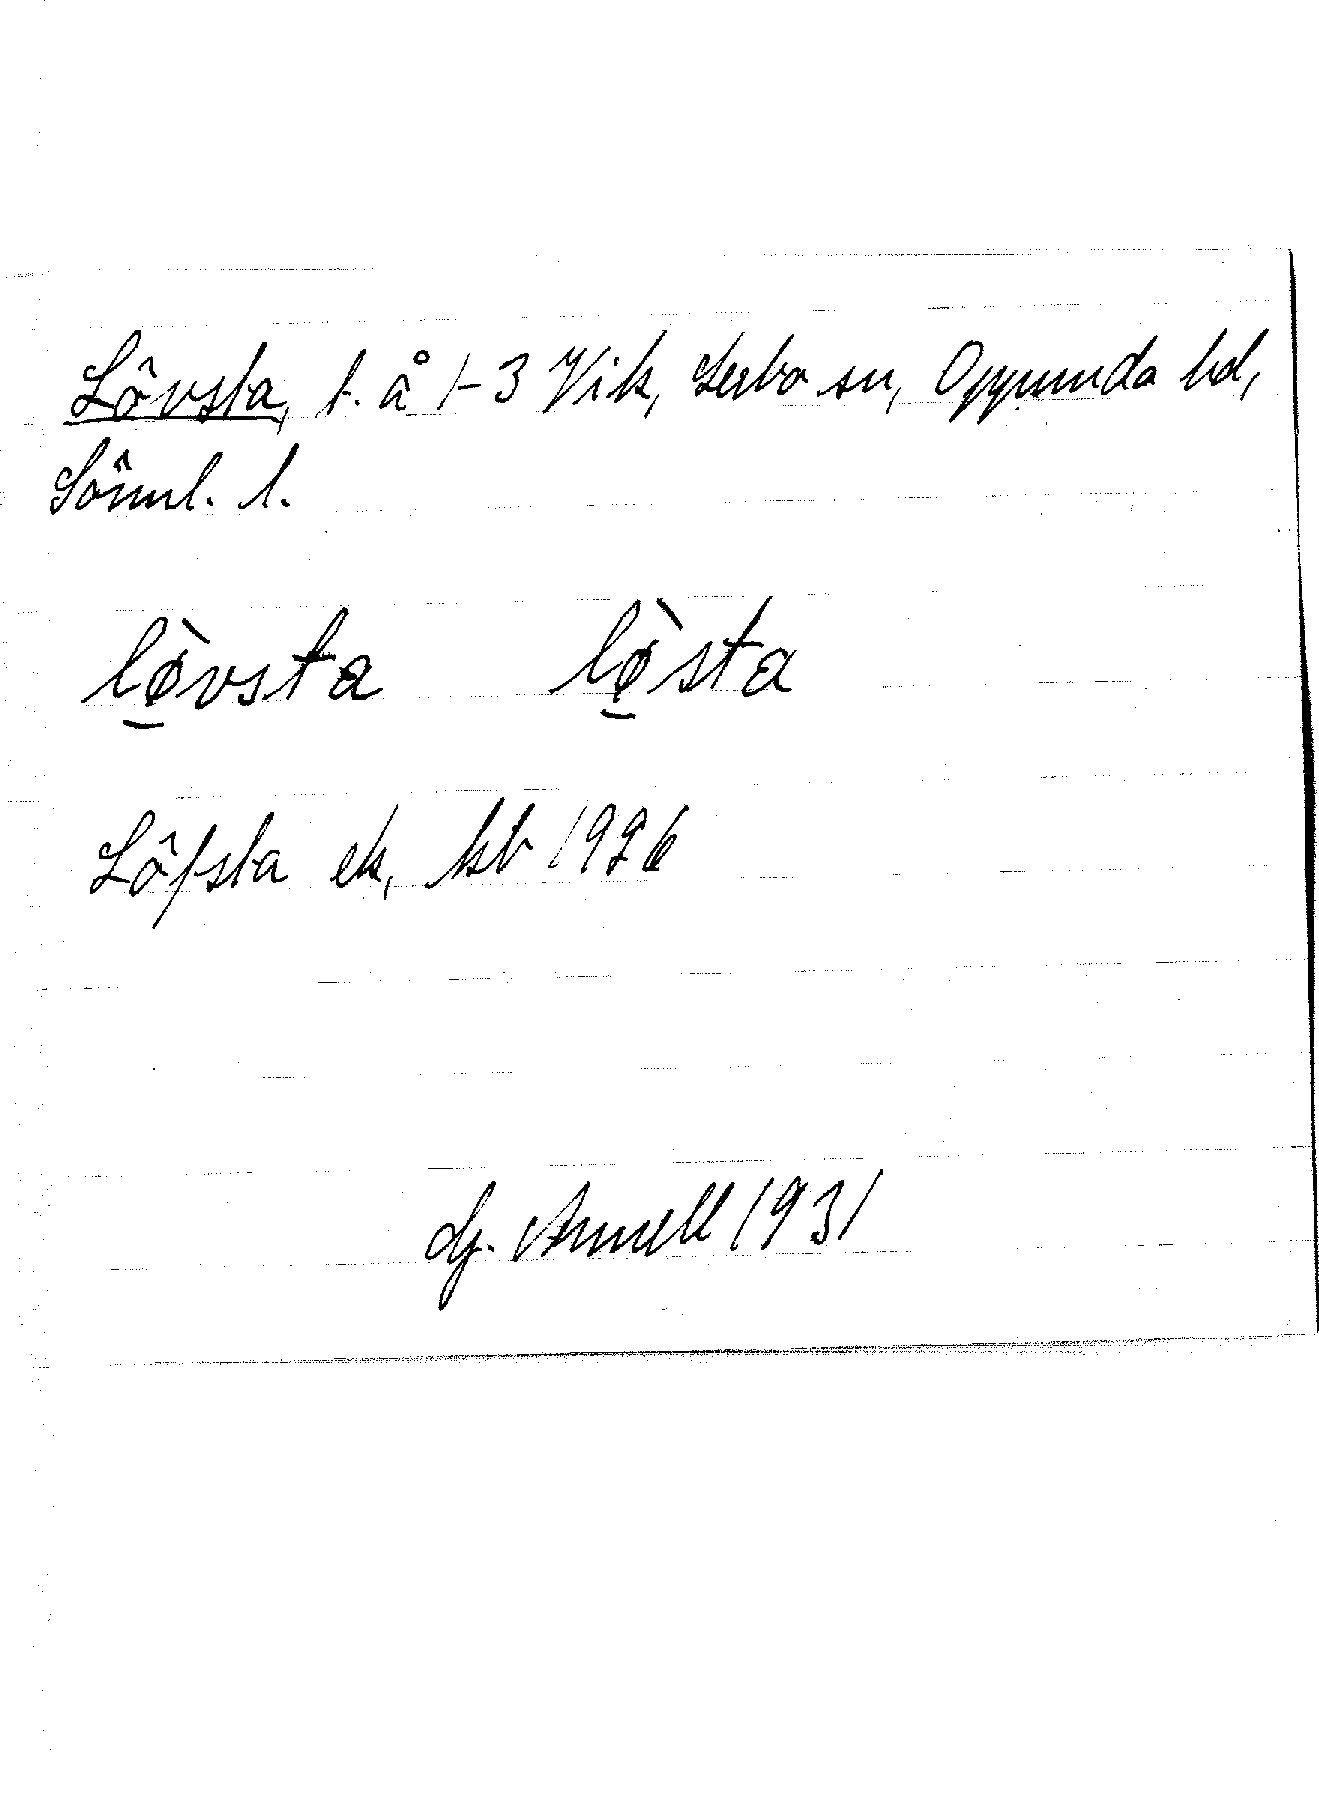 Lövsta, t. å 1-3 Vik, Lerbo sn, Oppunda hd,
Söml. l.
lø̠̀vsta lø̠̀sta
Löfsta ek, kb 1926
Hj. Annell 1931